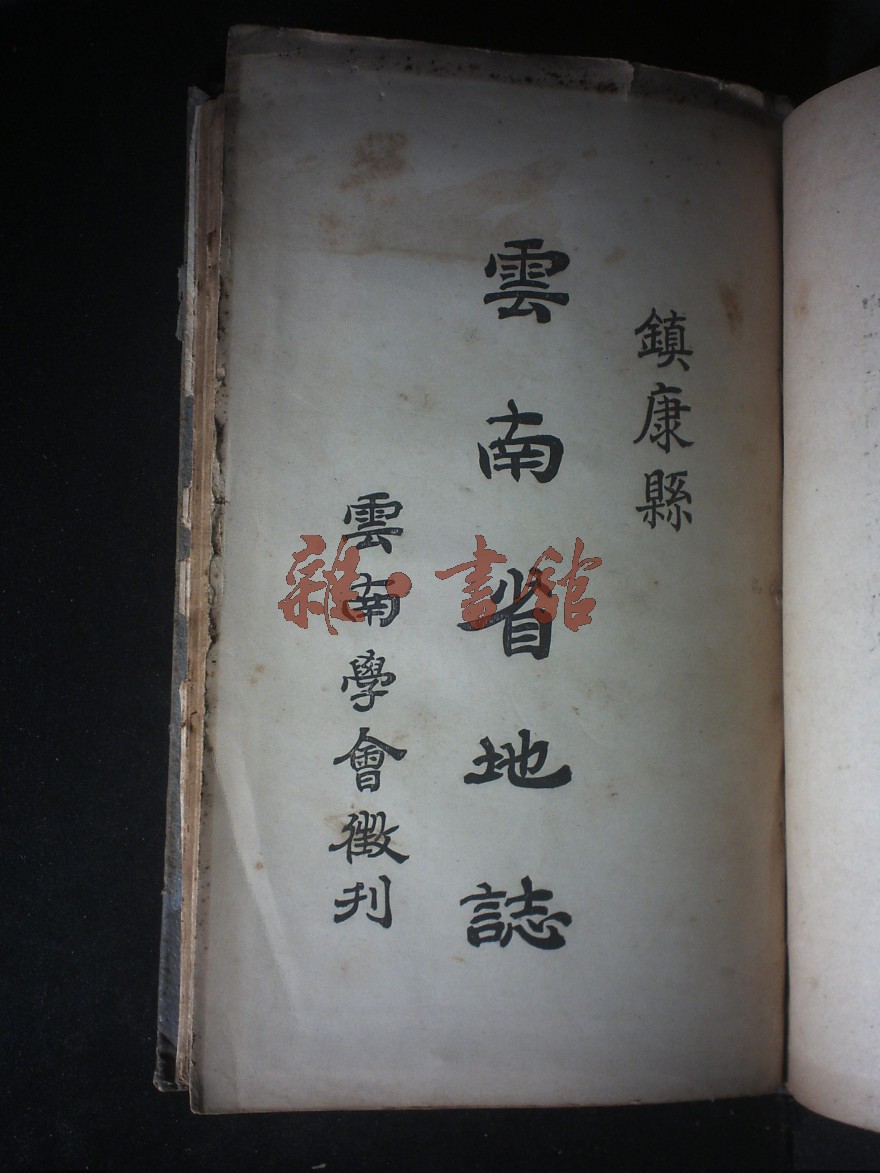 鎮康縣
雲南省地誌
雲南學會徵刊
雜·書館